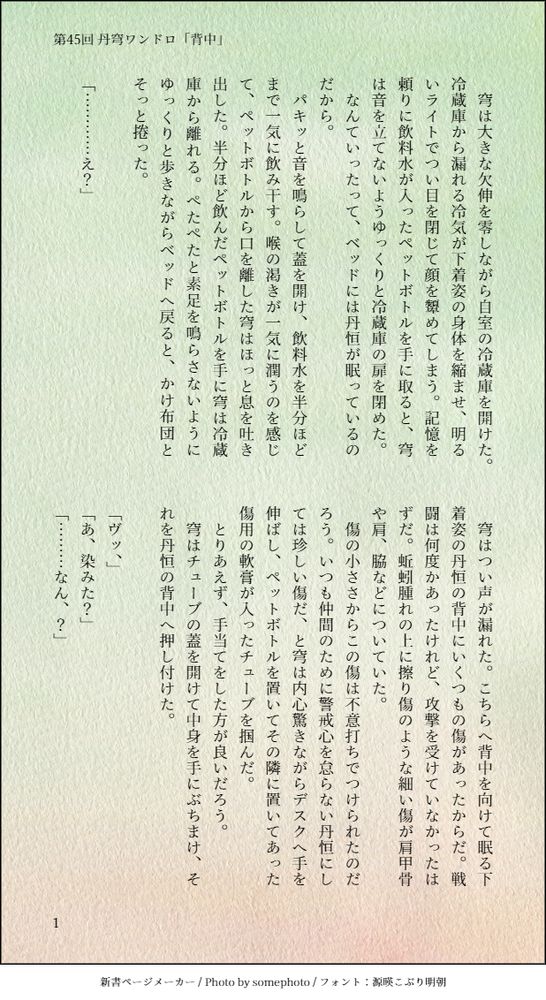 第45回 丹穹ワンドロ「背中」
　穹は大きな欠伸を零しながら自室の冷蔵庫を開けた。
冷蔵庫から漏れる冷気が下着姿の身体を縮ませ、明る
いライトでつい目を閉じて顔を顰めてしまう。記憶を
頼りに飲料水が入ったペットボトルを手に取ると、穹
は音を立てないようゆっくりと冷蔵庫の扉を閉めた。
　なんていったって、ベッドには丹恒が眠っているの
だから。
　パキッと音を鳴らして蓋を開け、飲料水を半分ほど
まで一気に飲み干す。喉の渇きが一気に潤うのを感じ
て、ペットボトルから口を離した穹はほっと息を吐き
出した。半分ほど飲んだペットボトルを手に穹は冷蔵
庫から離れる。ぺたぺたと素足を鳴らさないように
ゆっくりと歩きながらベッドへ戻ると、かけ布団と
そっと捲った。
「……………え？」
　穹はつい声が漏れた。こちらへ背中を向けて眠る下
着姿の丹恒の背中にいくつもの傷があったからだ。戦
闘は何度かあったけれど、攻撃を受けていなかったは
ずだ。蚯蚓腫れの上に擦り傷のような細い傷が肩甲骨
や肩、脇などについていた。
　傷の小ささからこの傷は不意打ちでつけられたのだ
ろう。いつも仲間のために警戒心を怠らない丹恒にし
ては珍しい傷だ、と穹は内心驚きながらデスクへ手を
伸ばし、ペットボトルを置いてその隣に置いてあった
傷用の軟膏が入ったチューブを掴んだ。
　とりあえず、手当てをした方が良いだろう。
　穹はチューブの蓋を開けて中身を手にぶちまけ、そ
れを丹恒の背中へ押し付けた。
「ヴッ、」
「あ、染みた？」
「………なん、？」
1
新書ページメーカー / Photo by somephoto / フォント：源暎こぶり明朝